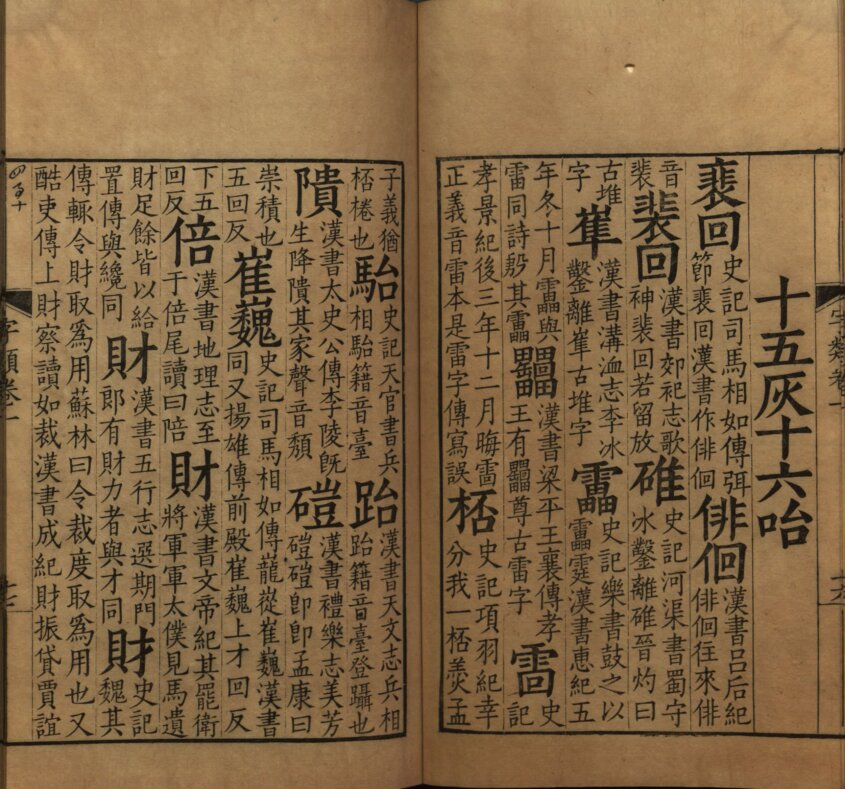 十五灰十六咍
裵回史記司馬相如傳弭節裵回漢書作俳佪俳佪漢書吕后紀俳佪往來俳
音裴裴回漢書郊祀志歌神裴回若留放碓史記河渠書蜀守冰鑿離碓晉灼曰
古堆字崔漢書溝洫志李冰鑿離崔古堆字靁史記樂書鼓之以靁霆漢書惠紀五
年冬十月靁與雷同詩殷其靁罍漢書梁平王襄傳孝王有罍尊古雷字𩂩史記
孝景紀後三年十二月晦𩂩正義音雷本是雷字傳寫誤桮史記項羽紀幸分我一桮羮孟
子義猶桮棬也駘史記天官書兵相駘籍音臺跆漢書天文志兵相跆籍音臺登躡也
隤漢書太史公傳李陵旣生降隤其家聲音頽磑漢書禮樂志美芳磑磑卽卽孟康曰
崇積也五回反崔巍史記司馬相如傳龍嵸崔巍漢書同又揚雄傳前殿崔巍上才回反
下五回反倍漢書地理志至于倍尾讀曰陪財漢書文帝紀其罷衛將軍軍太僕見馬遺
財足餘皆以給置傳與纔同財漢書五行志選期門郎有財力者與才同財史記魏其
傳輒令財取爲用蘇林曰令裁度取爲用也又酷吏傳上財察讀如裁漢書成紀財振貸賈誼
字類卷一